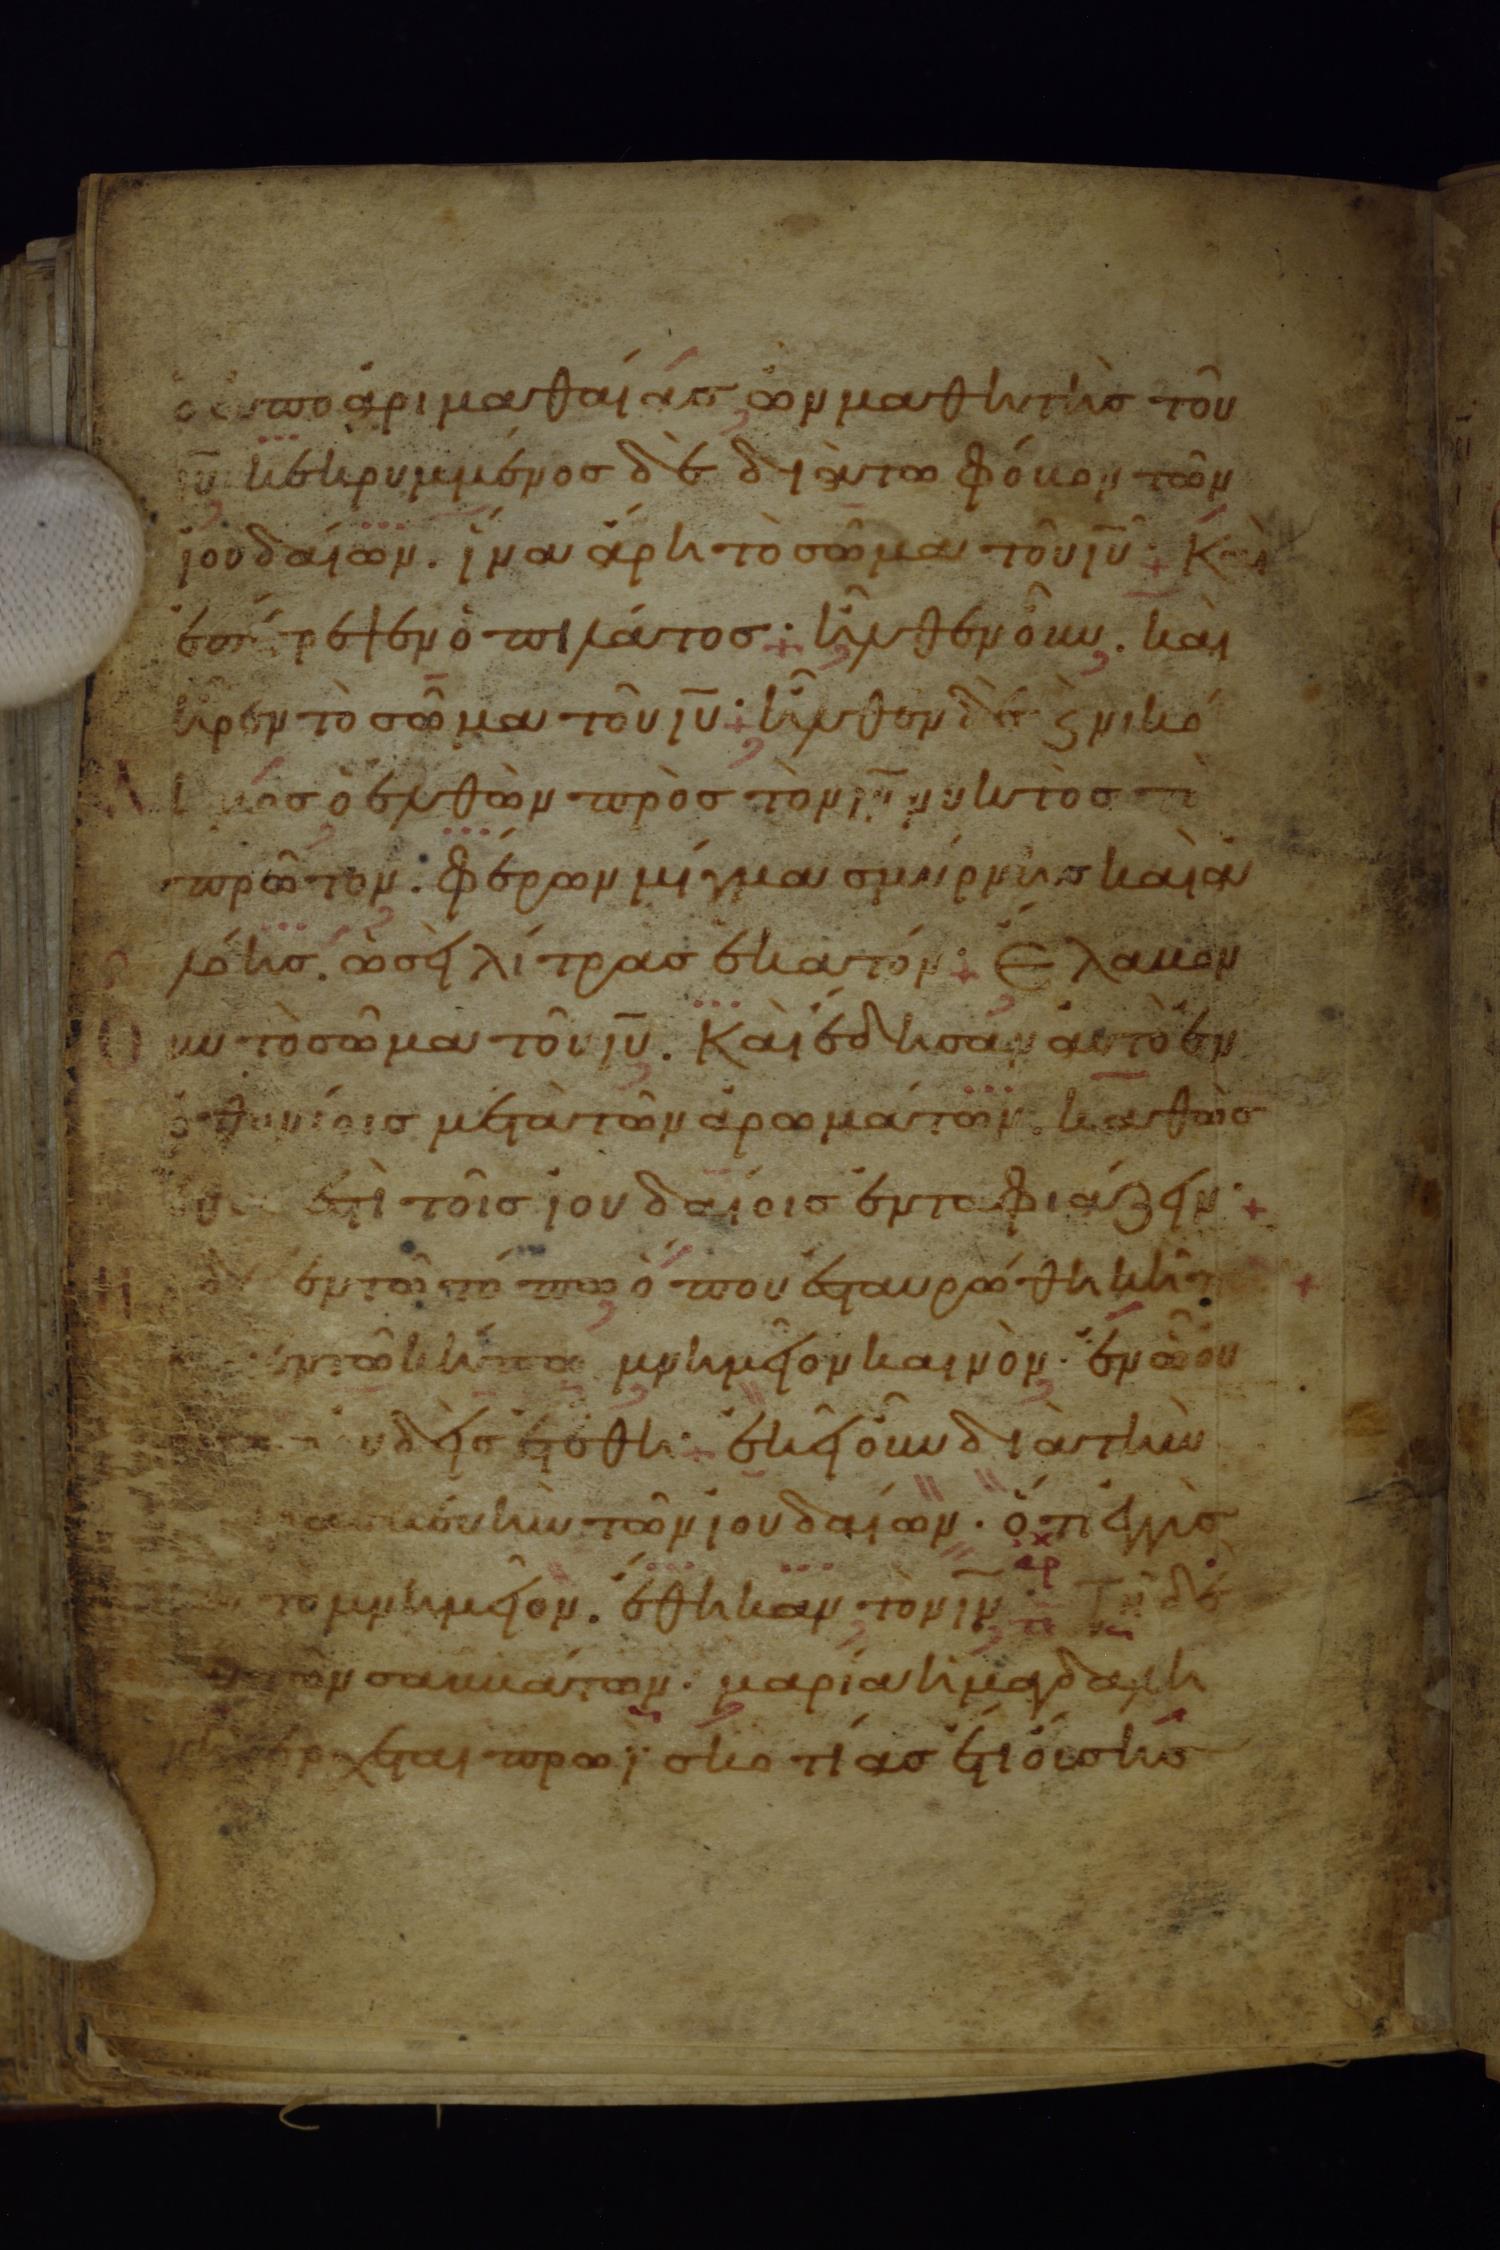 ὁ ἀπο ἀριμαθαίας ὢν μαθητὴς τοῦ
ιῦ κεκρυμμένος δὲ διὰ τὸ φόβον τῶν
ἰουδαίων. ἵνα ἄρη τὸ σῶμα τοῦ ιῦ· Καὶ
ἐπέτρεψεν ὁ πιλάτος· ἦλθεν οὖν. καὶ
ἦρεν τὸ σῶμα τοῦ ιῦ· ἦλθεν δὲ ϗ νικό
δημος ὁ ἐλθὼν πρὸς τὸν ιν νυκτὸς τὸ
πρῶτον. φέρων μίγμα σμύρνης καὶ ἀ
λόης. ὡσεὶ λίτρας ἑκατόν· Ἔλαβον
οὖν τὸ σῶμα τοῦ ιῦ. Καὶ ἔδησαν αὐτὸ ἐν
ὀθονίοις μετὰ τῶν ἀρωμάτων. καθὼς
ἔθος ἐστὶ τοῖς ἰουδαίοις ἐνταφιάζειν·
ἐν τῶ τόπω ὅπου ἐσταυρώθη κῆπ
ἐν τῶ κήπω μνημεῖον καινὸν. ἐν ὧ οὐ
οὐδεὶς ἐτέθη· ἐκεῖ οὖν διὰ τὴν
παρασκευὴν τῶν ἰουδαίων. ὅτι ἐγγὺς
τὸ μνημεῖον. ἔθηκαν τὸν ιν· Τῆ δὲ
τῶν σαββάτων. μαρία ἡ μαγδαλη
νὴ ἔρχεται πρωῒ σκοτίας ἔτι οὔσης